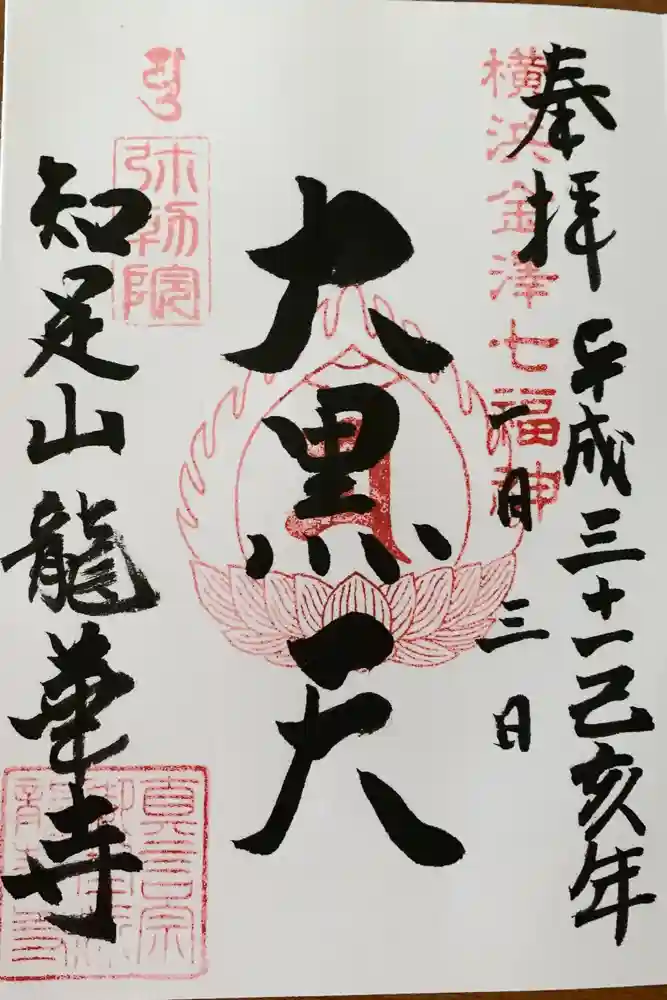 奉拝
横浜金澤七福神
平成三十一己亥年
一月三日
大黒天
弥勒院
知足山龍華寺
真言宗